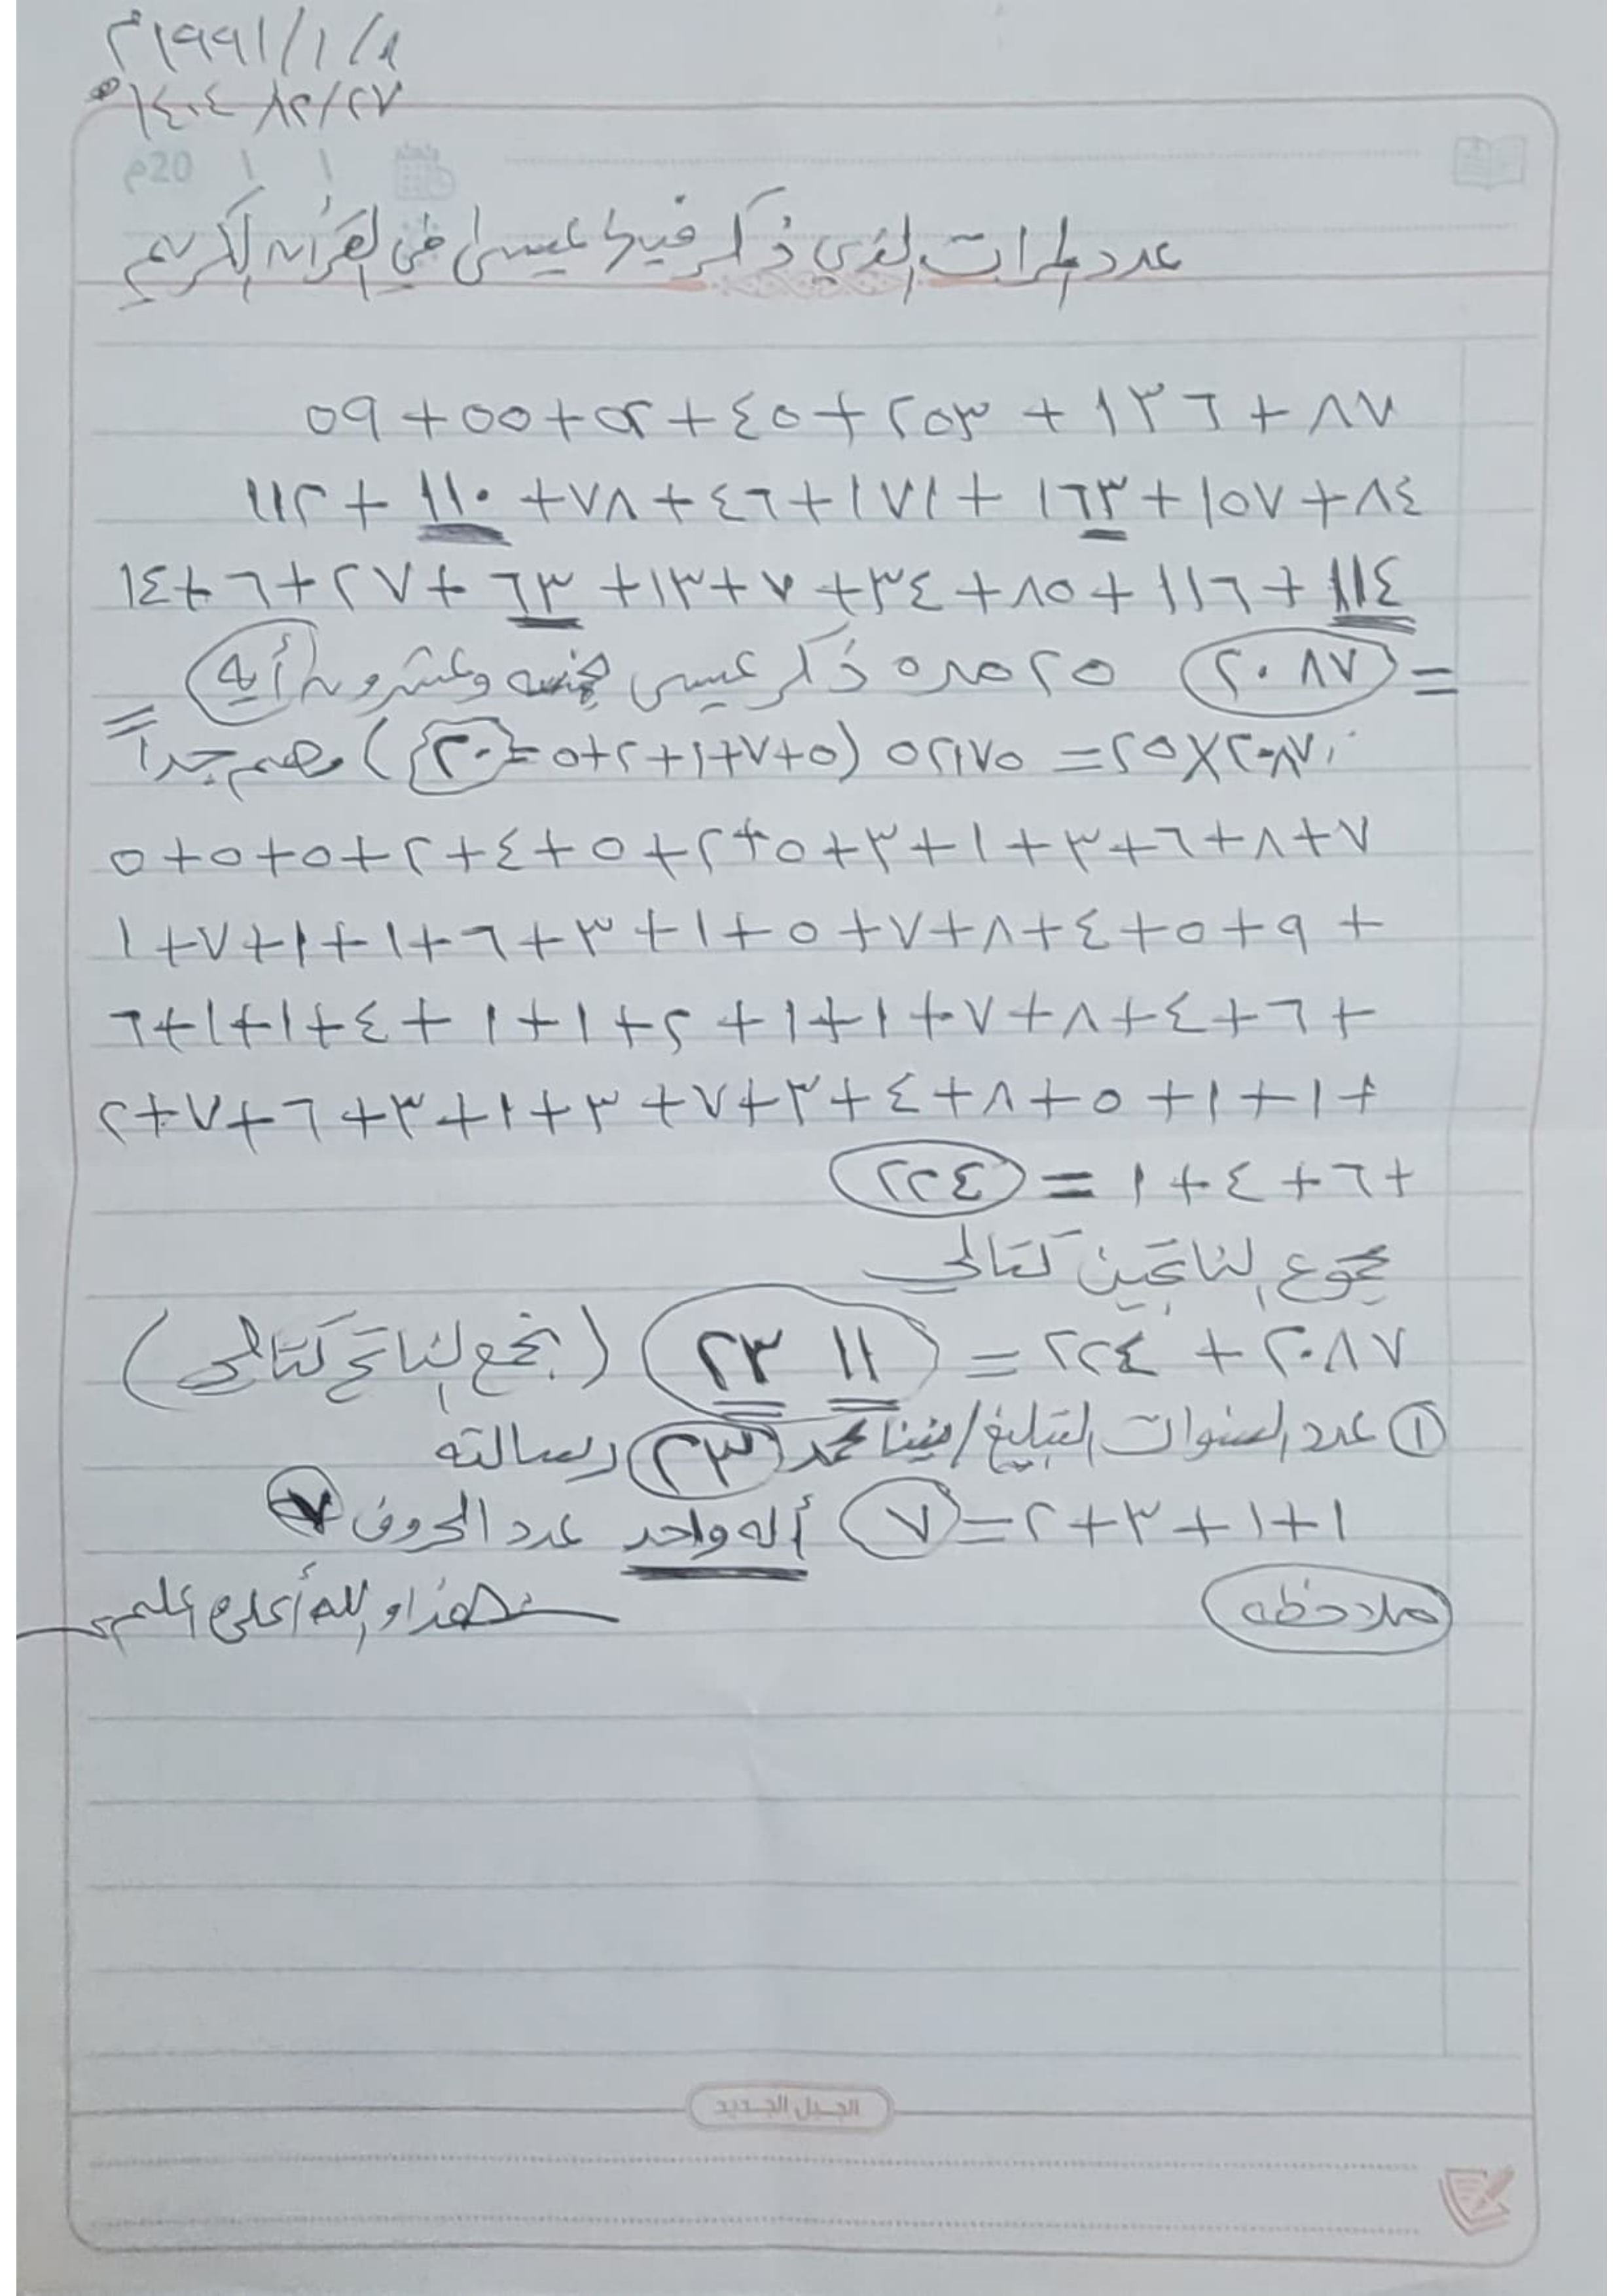 ١٩٩١/١/٨م
٢٠م
عدد المرات الذي ذكر فيها عيسى في القرآن الكريم
٨٧ + ١٣٦ + ٢٥٣ + ٤٥ + ٥٢ + ٥٥ + ٥٩
٨٤ + ١٥٧ + ١٦٣ + ١٧١ + ٤٦ + ٧٨ + ١١٠ + ١١٢
١١٤ + ١١٦ + ٨٥ + ٣٤ + ٧ + ١٣ + ٦٣ + ٢٧ + ٦ + ١٤
= ٢٠٨٧ ٢٥ مره ذكر عيسى بخمسه وعشرون أيه
٢٠٨٧ × ٢٥ = ٥٢١٧٥ (٥+٧+١+٢+٥=٢٠) مهم جداً
٧+٨+٦+٣+١+٣+٥+٢+٥+٤+٢+٥+٥+٥
+ ٩+٥+٤+٨+٧+٥+١+٣+٦+١+١+٧+١
+٦+٤+٨+٧+١+١+٢+١+١+٤+١+١+٦
+١+١+٥+٨+٤+٣+٧+٣+١+٣+٦+٧+٢
+٦+٤+١ = ٢٢٤
مجموع الناتجين كتالي
٢٠٨٧ + ٢٢٤ = ٢٣ ١١ (بجمع الناتج كتالي)
① عدد السنوات التبليغ / نبينا محمد ٢٣ رسالته
١+١+٣+٢=٧ أله واحد عدد الحروف ٧
ملاحظه هذا والله أعلى وعلم
الجيل الجديد